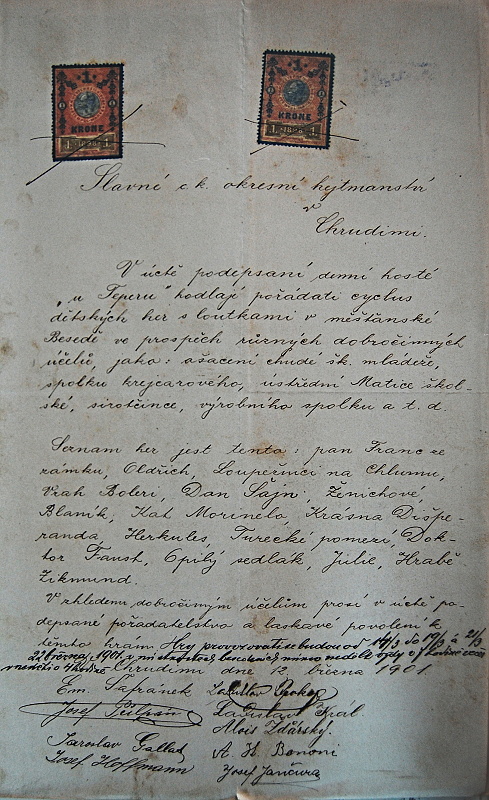 1 KRONE 1898
1 KRONE 1898
Slavné c. k. okresní hejtmanství
v
Chrudimi.
V úctě podepsaní denní hosté
„u Teperu" hodlají pořádati cyclus
dětských her s loutkami v měšťanské
Besedě ve prospěch různých dobročinných
účelů, jako: ošacení chudé šk. mládeže,
spolku krejcarového, ústřední Matice škol-
ské, sirotčince, výrobního spolku a t. d.
Seznam her jest tento: pan Franc ze
zámku, Oldřich, Loupežníci na Chlumu,
Vrah Boleri, Don Šajn, Ženichové,
Blaník, Kat Morinelo, Krásná Dišpe-
randa, Herkules, Turecké pomezí, Dok-
tor Faust, Opilý sedlák, Julie, Hrabě
Zikmund.
V zhledem dobročiným účelům prosí v úctě po-
depsané pořadatelstvo a laskavé povolení k
těmto hrám. Hry provozovati se budou od 14/3 do 19/3 a 21/3
22 března 1901 v místnostech besedních mimo neděli vždy o
neděli o Chrudimi dne 12. března 1901.
Em. Šafránek Ladislav
Josef Ladislav Král.
Alois Žďárský.
Jaroslav Gallat A. H. Bononi
Josef Hoffmann Josef Jančura